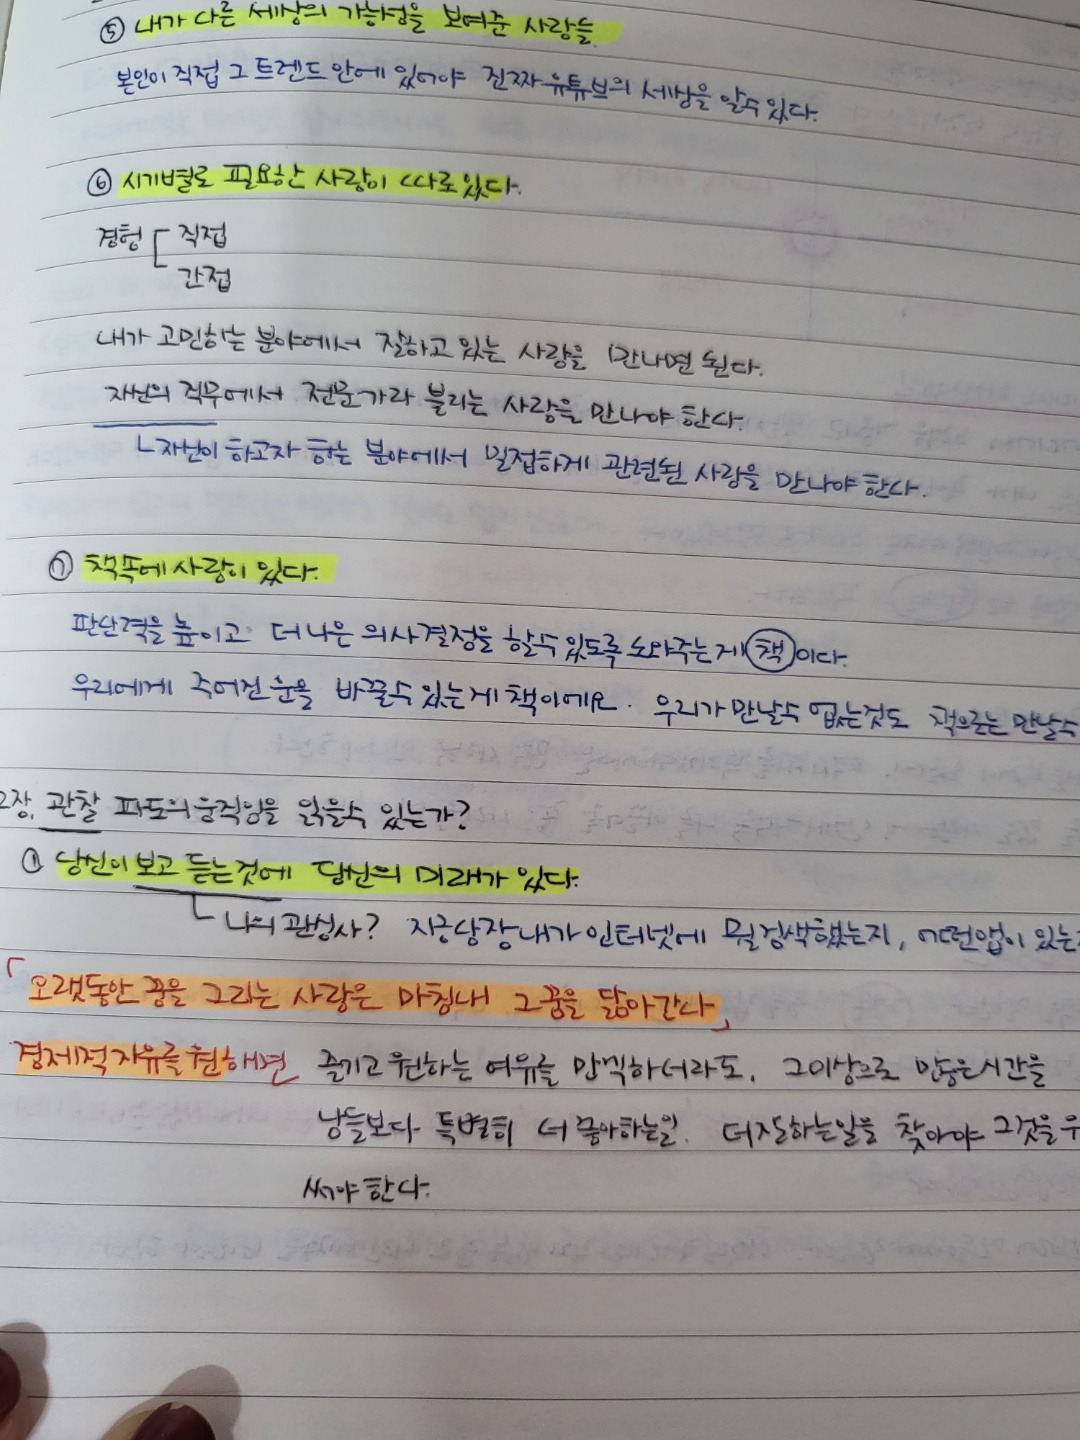 ⑤ 내가 다른 세상의 가능성을 보여준 사람들.
본인이 직접 그 트렌드 안에 있어야 진짜 유튜브의 세상을 알수 있다.
⑥ 시기별로 필요한 사람이 따로있다.
경험 직접
간접
내가 고민하는 분야에서 잘하고 있는 사람을 만나면 된다.
자신의 직무에서 전문가라 불리는 사람을 만나야 한다.
자신이 하고자 하는 분야에서 밀접하게 관련된 사람을 만나야 한다.
⑦ 책속에 사람이 있다.
판단력을 높이고 더 나은 의사결정을 할수 있도록 도와주는게 책이다.
우리에게 주어진 운을 바꿀수 있는게 책이에요. 우리가 만날수 없는것도 책으로는 만날수
2장. 관찰 파도의 움직임을 읽을수 있는가?
① 당신이 보고 듣는것에 당신의 미래가 있다.
나의 관심사? 지금당장 내가 인터넷에 뭘검색했는지, 어떤앱이 있는지
「오랫동안 꿈을 그리는 사람은 마침내 그 꿈을 닮아간다」
경제적 자유를 원해면 즐기고 원하는 여유를 만끽하더라도, 그이상으로 많은시간을
남들보다 특별히 더 좋아하는일. 더잘하는일을 찾아야 그것을
써야 한다.